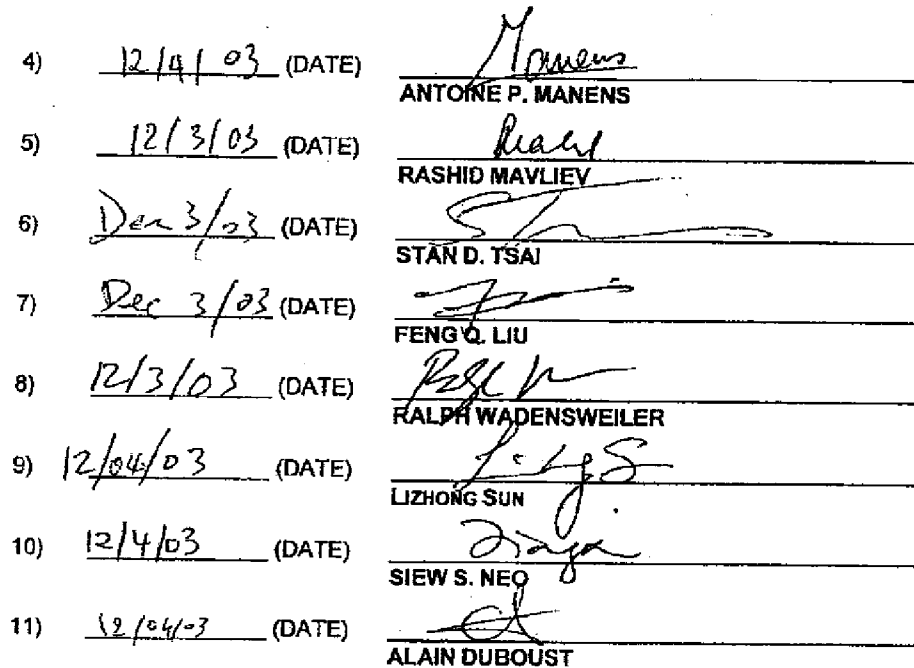 4) 12/4/03 (DATE) Manens
ANTOINE P. MANENS
5) 12/3/03 (DATE)
RASHID MAVLIEV
6) Dec 3/03 (DATE)
STAN D. TSAI
7) Dec 3/03 (DATE)
FENG Q. LIU
8) 12/3/03 (DATE)
RALPH WADENSWEILER
9) 12/04/03 (DATE)
LIZHONG SUN
10) 12/4/03 (DATE)
SIEW S. NEO
11) 12/04/03 (DATE)
ALAIN DUBOUST